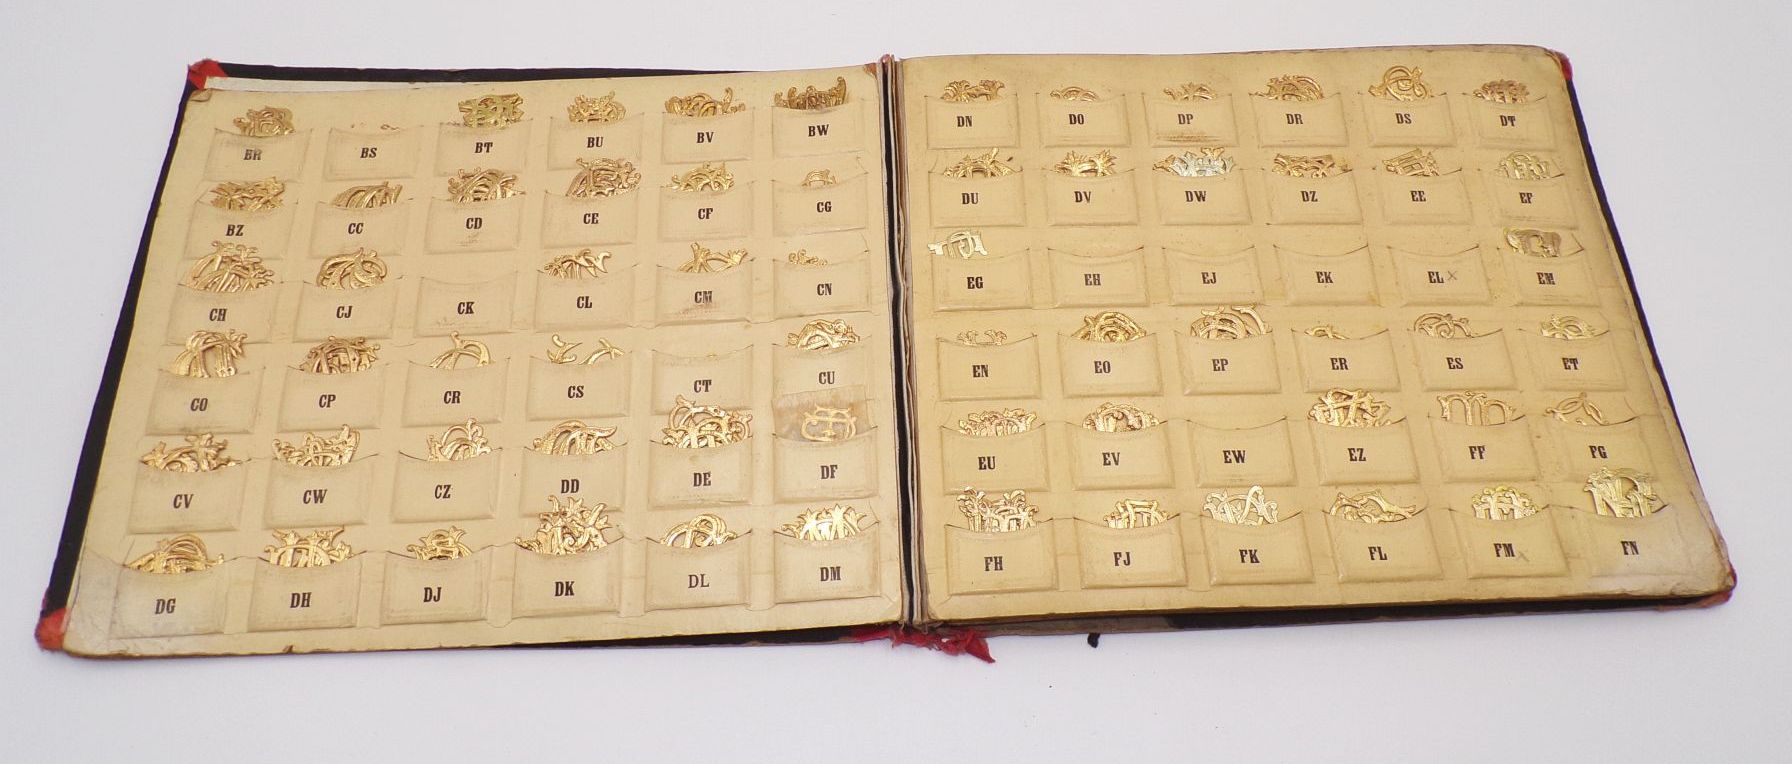 BR BS BT BU BV BW
BZ CC CD CE CF CG
CH CJ CK CL CM CN
CO CP CR CS CT CU
CV CW CZ DD DE DF
DG DH DJ DK DL DM
DN DO DP DR DS DT
DU DV DW DZ EE EF
EG EH EJ EK EL x EM
EN EO EP ER ES ET
EU EV EW EZ FF FG
FH FJ FK FL FM x FN